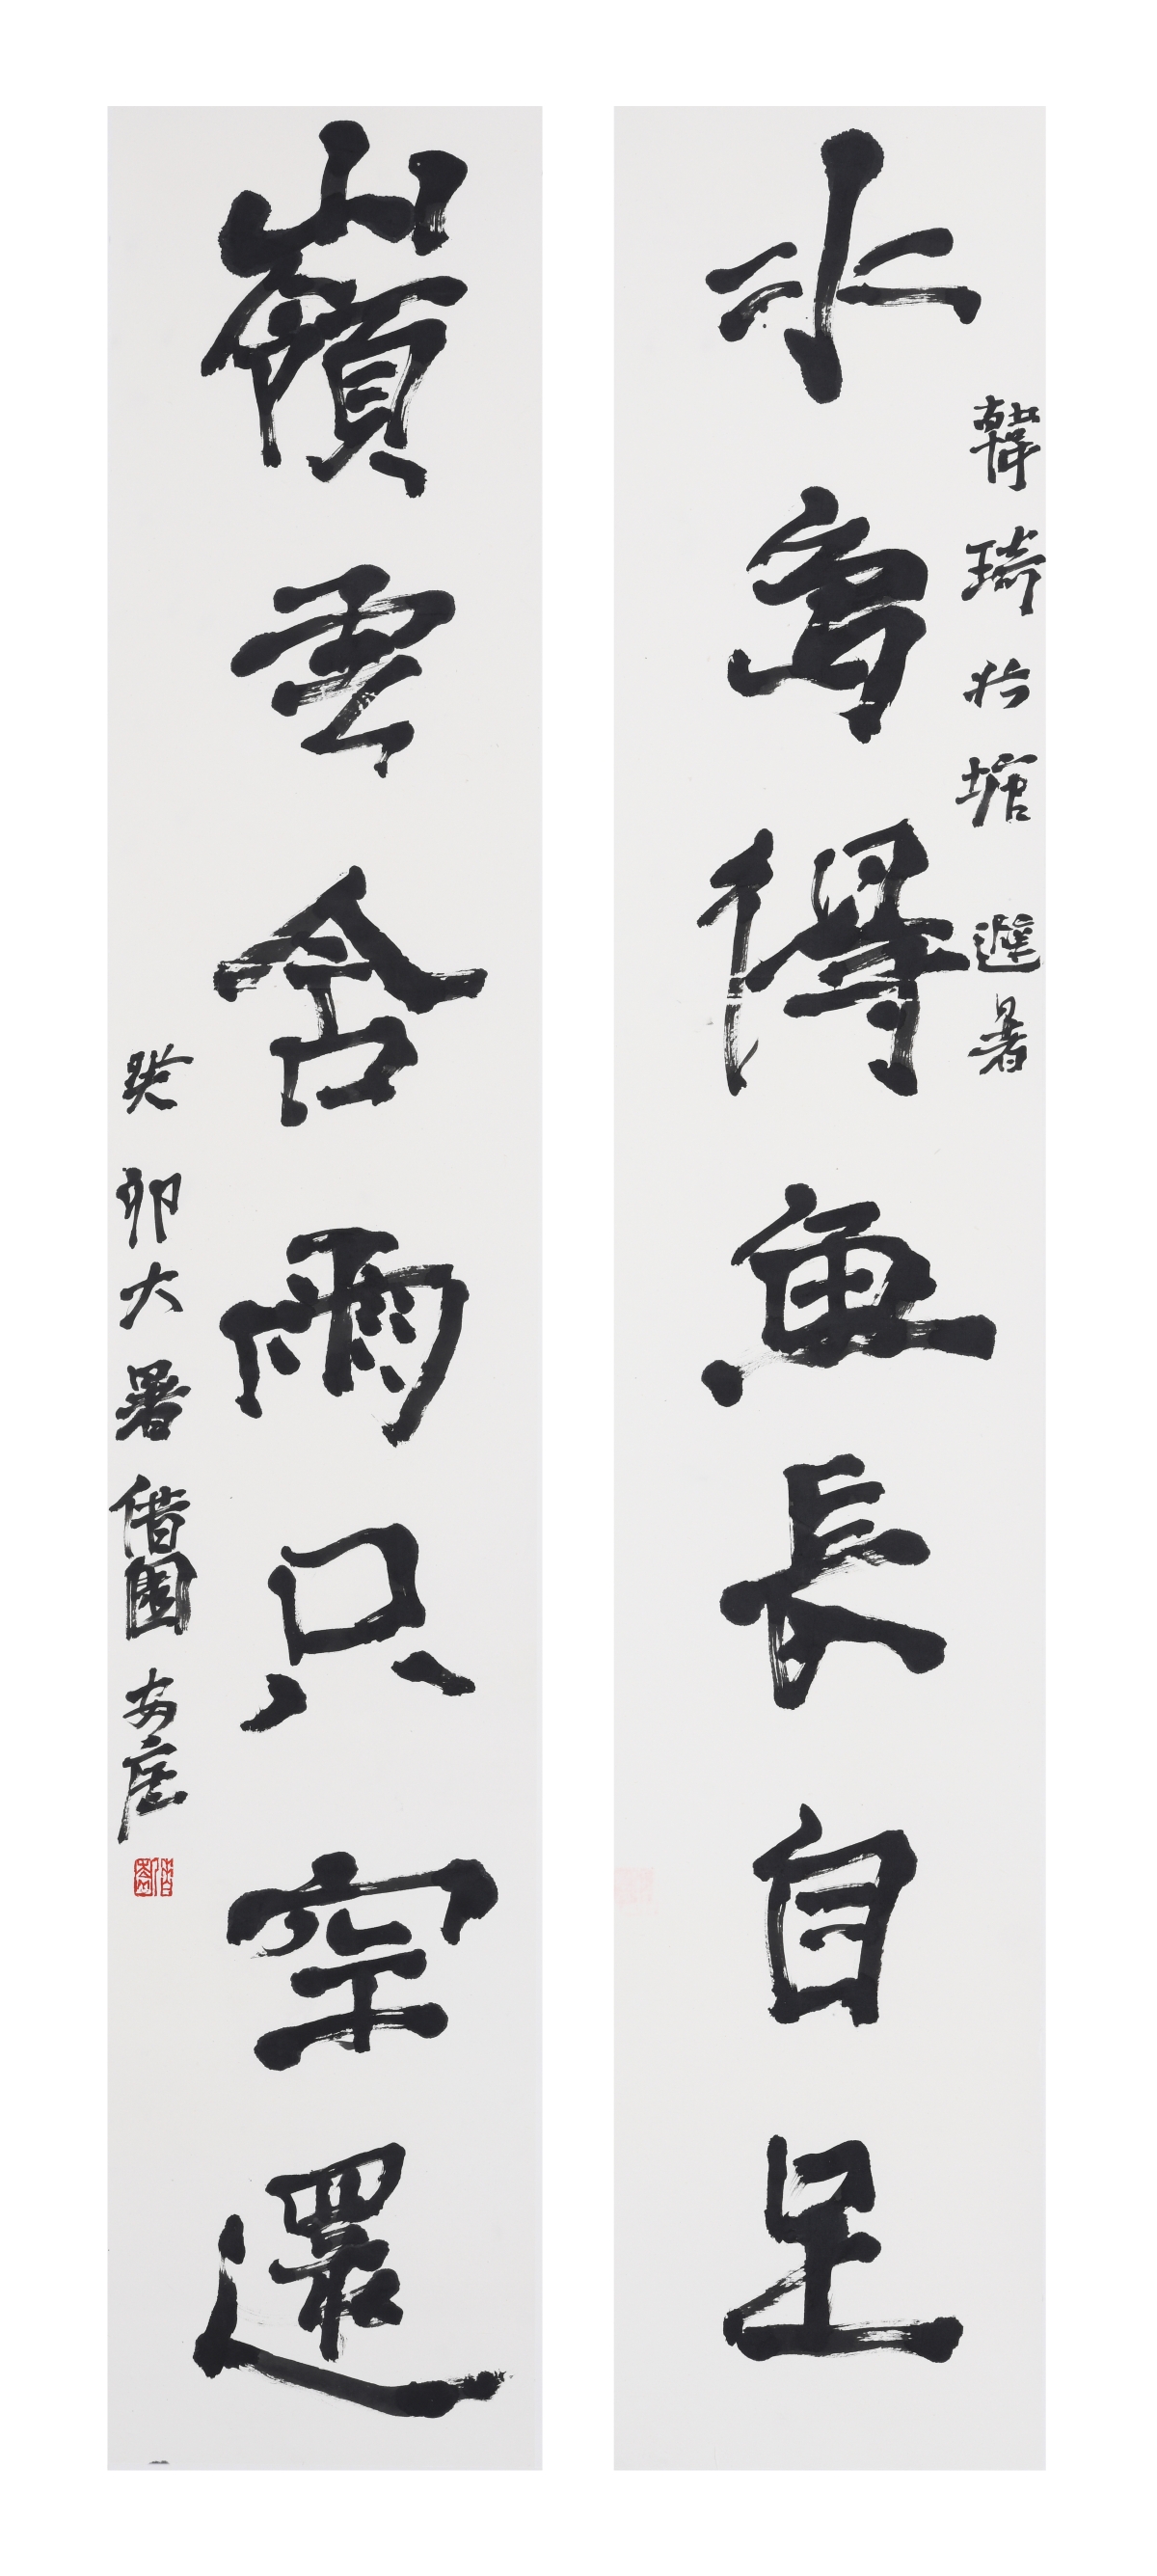 韓琦北塘避暑
水鳥得魚長自足
嶺雲含雨只空還
癸卯大暑借園安庭